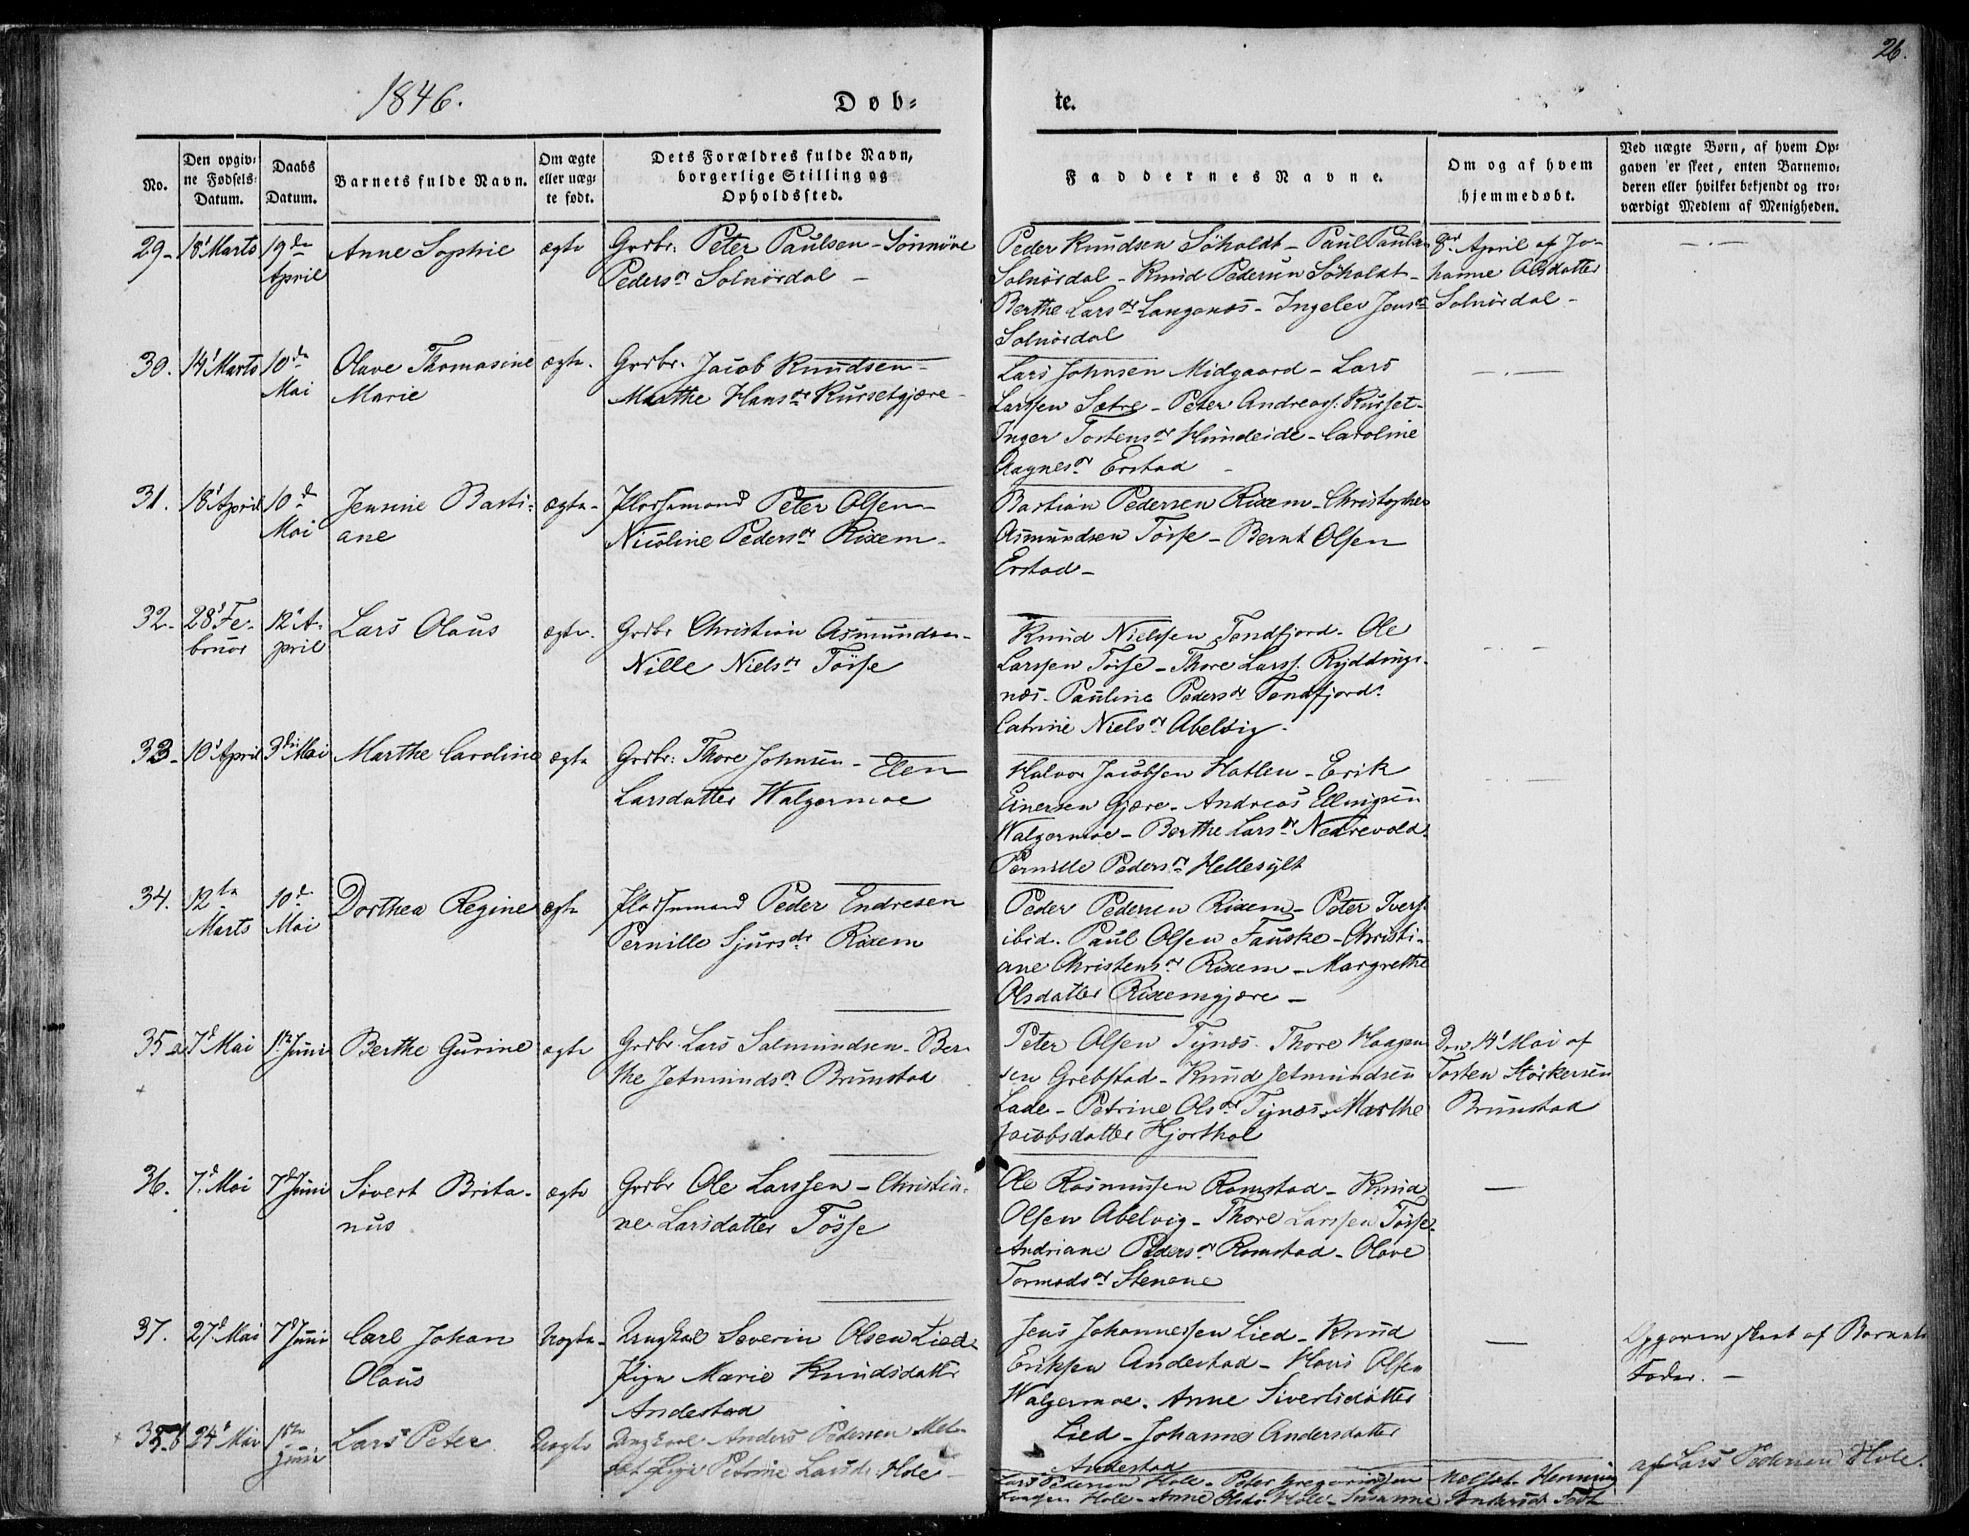 26.
1846.
Døb-
te.
No.
Den opgiv-
ne Fødsels-
Datum.
Daabs
Datum.
Barnets fulde Navn.
Om ægte
eller uæg-
te født.
Dets Forældres fulde Navn,
borgerlige Stilling og
Opholdssted.
Faddernes Navne.
Om og af hvem
hjemmedøbt.
Ved uægte Børn, af hvem Op-
gaven er skeet, enten Barnemo-
deren eller hvilket bekjendt og tro-
værdigt Medlem af Menigheden.
29- 18' Marts 19de April
Anne Sophie
ægte
Grdbr: Peter Paulsen - Sønnøve
Peders dr Solnørdal -
Peder Knudsen Søholdt - Paul Pauls.
Solnørdal - Knud Pedersen Søholdt -
Berthe Lars dr Langenæs - Ingelev Jens dr
Solnørdal
8de April af Jo-
hanne Olsdatter
Solnørdal -
30. 14' Marts 10de Mai
Olave Thomasine
Marie
ægte.
Grdbr. Jacob Knudsen -
Marthe Hans dr Kursetgjære -
Lars Johnsen Midgaard - Lars
Larssen Sætre - Peter Andreass. Kurset -
Inger Tostens dr Hundeide - Caroline
Aagnes dr Erstad -
31. 18' April 10d Mai
Jensine Basti-
ane
ægte -
Pladsemand Peter Olsen -
Nicoline Peders dr Rixem -
Bastian Pedersen Rixem - Christopher
Asmundsen Tøsse - Bernt Olsen
Erstad -
32- 28' Fe-
bruar
12' A-
pril
Lars Olaus
ægte.
Grdbr Christian Asmundsen -
Nille Niels dr Tøsse
Knud Nielssen Tandfjord - Ole
Larssen Tøsse - Thore Larss. Ryddings-
næs - Pauline Peders dr Tandfjord.
Catrine Niels dr Abelvig -
33- 10' April 3die Mai
Marthe Caroline
ægte
Grdbr: Thore Johnsen - Elen
Larsdatter Walgermoe
Halvor Jacobsen Hatlen - Erik
Einersen Gjære - Andreas Ellingsen
Walgermoe - Berthe Lars dr Nedrevold -
Pernille Peders dr Hellesylt
34. 12te Marts 10d Mai
Dorthea Regine
ægte
Pladsemand Peder Endresen
Pernille Sjurs dr Rixem
Peder Pedersen Rixem - Peter Ivers.
ibid. Paul Olsen Fauske - Christi-
ane Christens dr Rixem - Margrethe
Olsdatter Rixemgjære -
35a 7d Mai 1ste Juni
Berthe Gurine
ægte
Grdbr. Lars Salmundsen - Ber-
the Jetmunds dr Brunstad
Peter Olsen Tynæs - Thore Haagen-
sen Grebstad - Knud Jetmundsen
Lade - Petrine Ols dr Tynæs - Marthe
Jacobsdatter Hjorthol
Den 14' Mai af
Tosten Størkersen
Brunstad
36. 7d Mai 7d Juni
Sivert Brita-
nus
ægte
Grdbr Ole Larssen - Christia-
ne Larsdatter Tøsse
Ole Rasmussen Ramstad - Knud
Olsen Abelvig - Thore Larssen Tøsse -
Andriane Peders dr Ramstad - Olave
Tormods dr Stenene
37. 27d Mai 7d Juni
Carl Johan
Olaus
Uægte -
Ungkarl Severin Olsen Lied -
Pige Marie Knudsdatter
Andestad
Jens Johannessen Lied - Knud
Erikssen Andestad - Hans Olsen
Walgermoe. Anne Sivertsdatter
Lied - Johanne Andersdatter
Andestad
Opgaven skeet af Barnets
Fader. -
35b 24' Mai 1ste Juni
Lars Peter
Uægte
Ungkarl Anders Pedersen Mel-
set Pige Petrine Larsdr. Hole -
Lars Pedersen Hole - Peter Gregoriussen Melset - Henning
Hole - Anne Olsdr. Hole - Susanne Andersdr.
af Lars Pedersen Hole.